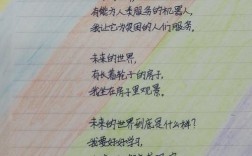 有能为人类服务的机器人,
我让它为贫困的人们服务。
未来的世界,
有长着轮子的房子,
我坐在房子里观景。
未来的世界到底是什么样?
我要好好学习,